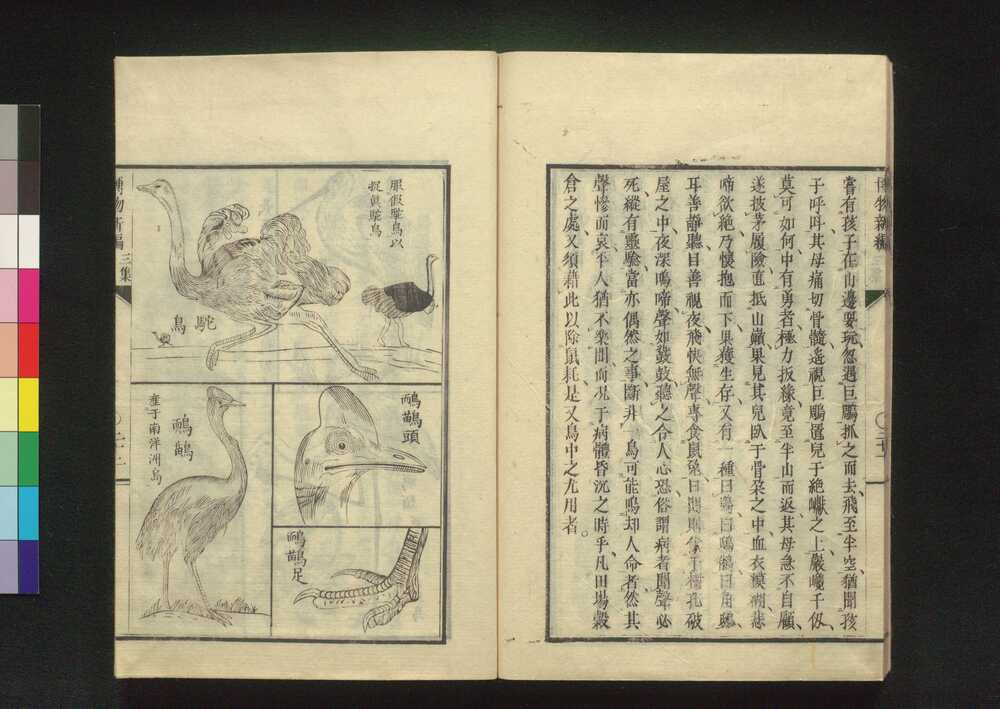 博物新編
三集
嘗有孩子在山邊耍玩忽遇巨鵰抓之而去飛至半空猶聞孩
子呼呌其母痛切骨髓遙視巨鵰置兒于絕巘之上嚴巉千仭
莫可如何中有勇者極力扳緣竟至半山而返其母急不自顧
遂披茅履險直抵山巔果見其兒臥于骨朶之中血衣糢糊悲
啼欲絕乃懷抱而下果獲生存又有一種曰鴞曰鴟鵂曰角鴟
耳善靜聽目善視夜飛快無聲專食鼠兔日間則伏于樹孔破
屋之中夜深鳴啼聲如鼓鼓聽之令人心恐俗謂病者聞聲必
死縱有靈驗當亦偶然之事斷非鳥可能鳴却人命者然其
聲慘而哀平人猶不樂聞而况于病體昏沉之時乎凡田塲穀
倉之處又須藉此以除鼠耗是又鳥中之尤用者。
博物新編
三集
服假駝鳥以
捉眞駝鳥
駝鳥
鴯鶓頭
鴯鶓
產于南洋洲島
鴯鶓足